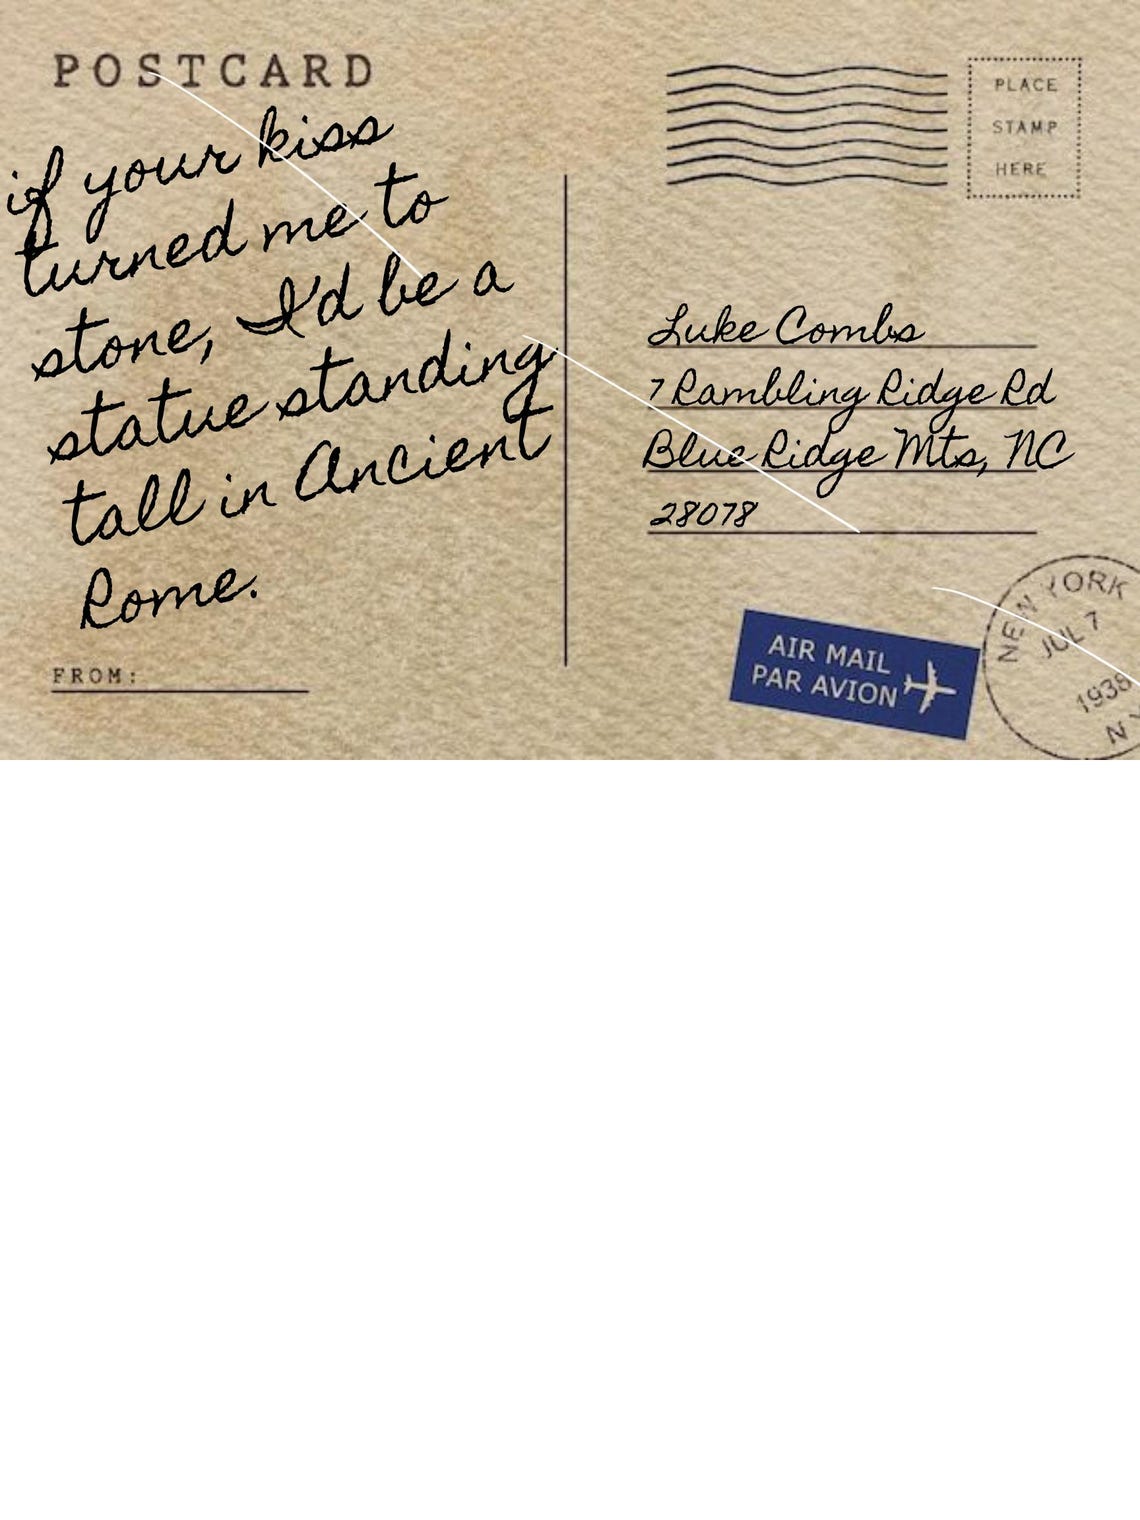 POSTCARD
if your kiss
turned me to
stone, I'd be a
statue standing
tall in Ancient
Rome.
FROM:
PLACE
STAMP
HERE
Luke Combs
7 Rambling Ridge Rd
Blue Ridge Mts, NC
28078
AIR MAIL
PAR AVION
NEW YORK
JUL 7
1938
N Y